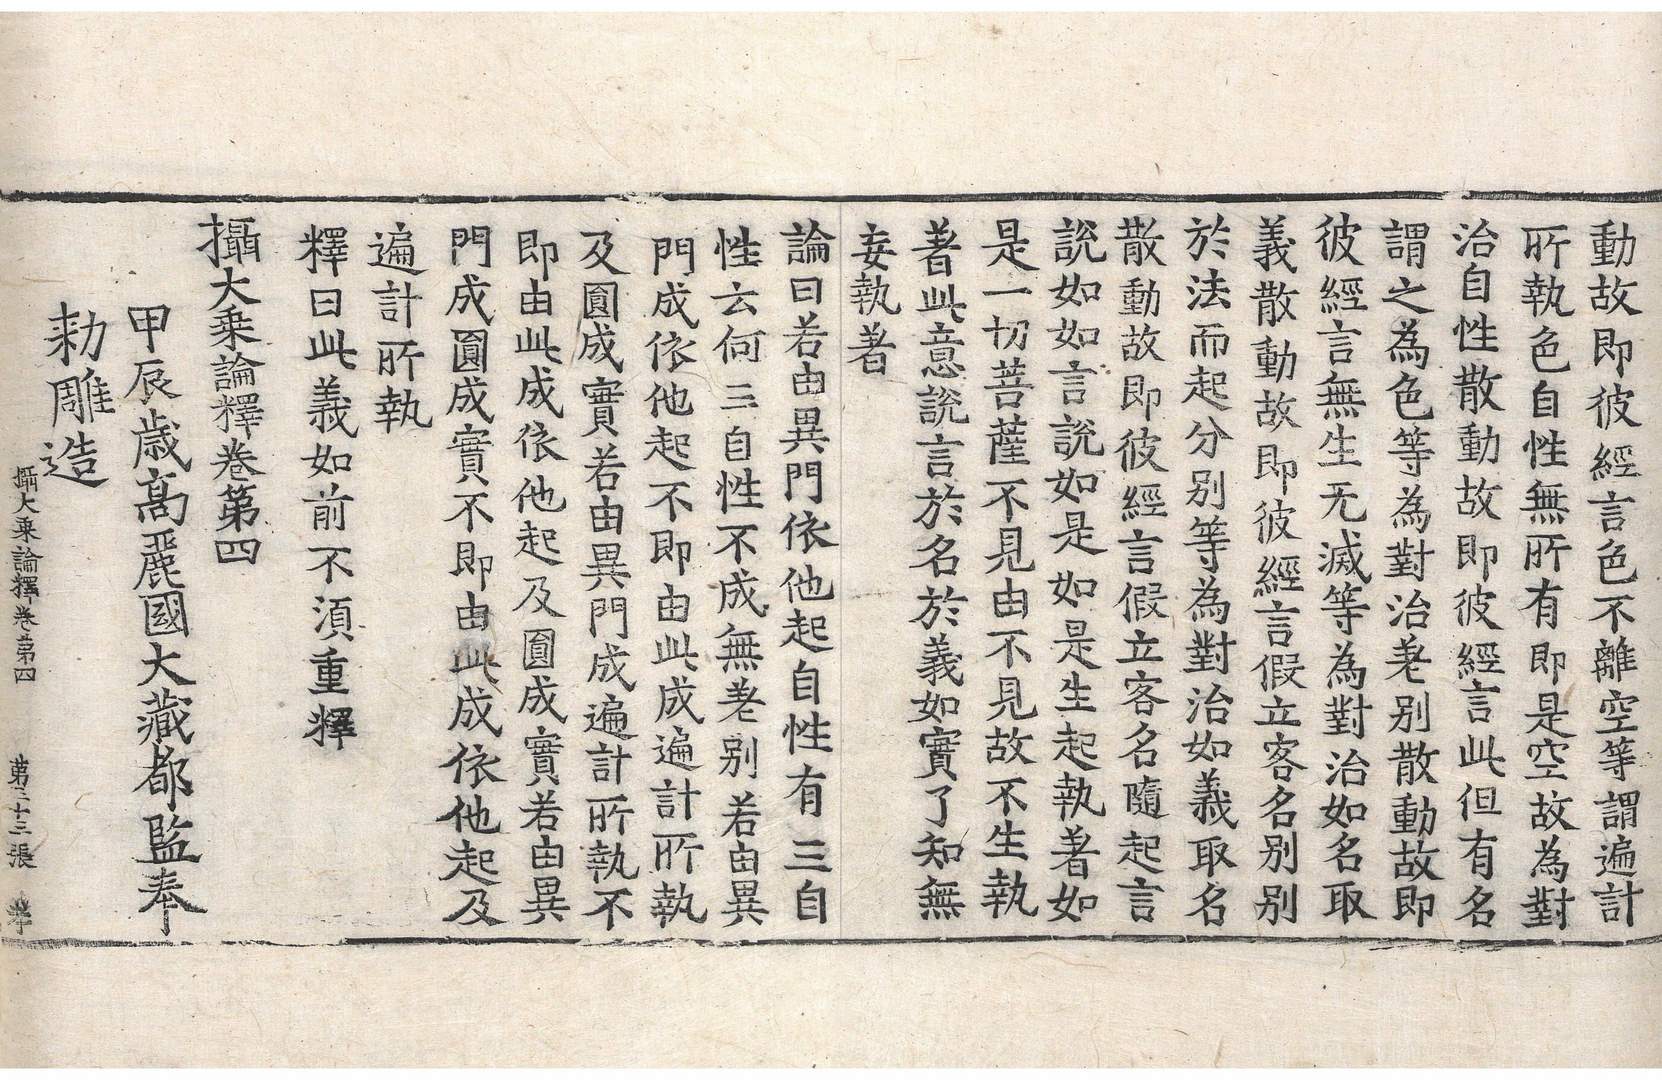 動故即彼經言色不離空等謂遍計
所執色自性無所有即是空故為對
治自性散動故即彼經言此但有名
謂之為色等為對治差別散動故即
彼經言無生无滅等為對治如名取
義散動故即彼經言假立客名別別
於法而起分別等為對治如義取名
散動故即彼經言假立客名隨起言
說如如言說如是如是生起執著如
是一切菩薩不見由不見故不生執
著此意說言於名於義如實了知無
妄執著
論曰若由異門依他起自性有三自
性云何三自性不成無差別若由異
門成依他起不即由此成遍計所執
及圓成實若由異門成遍計所執不
即由此成依他起及圓成實若由異
門成圓成實不即由此成依他起及
遍計所執
釋曰此義如前不須重釋
攝大乘論釋卷第四
甲辰歲高麗國大藏都監奉
勅雕造
攝大乘論釋卷第四 第二十三張